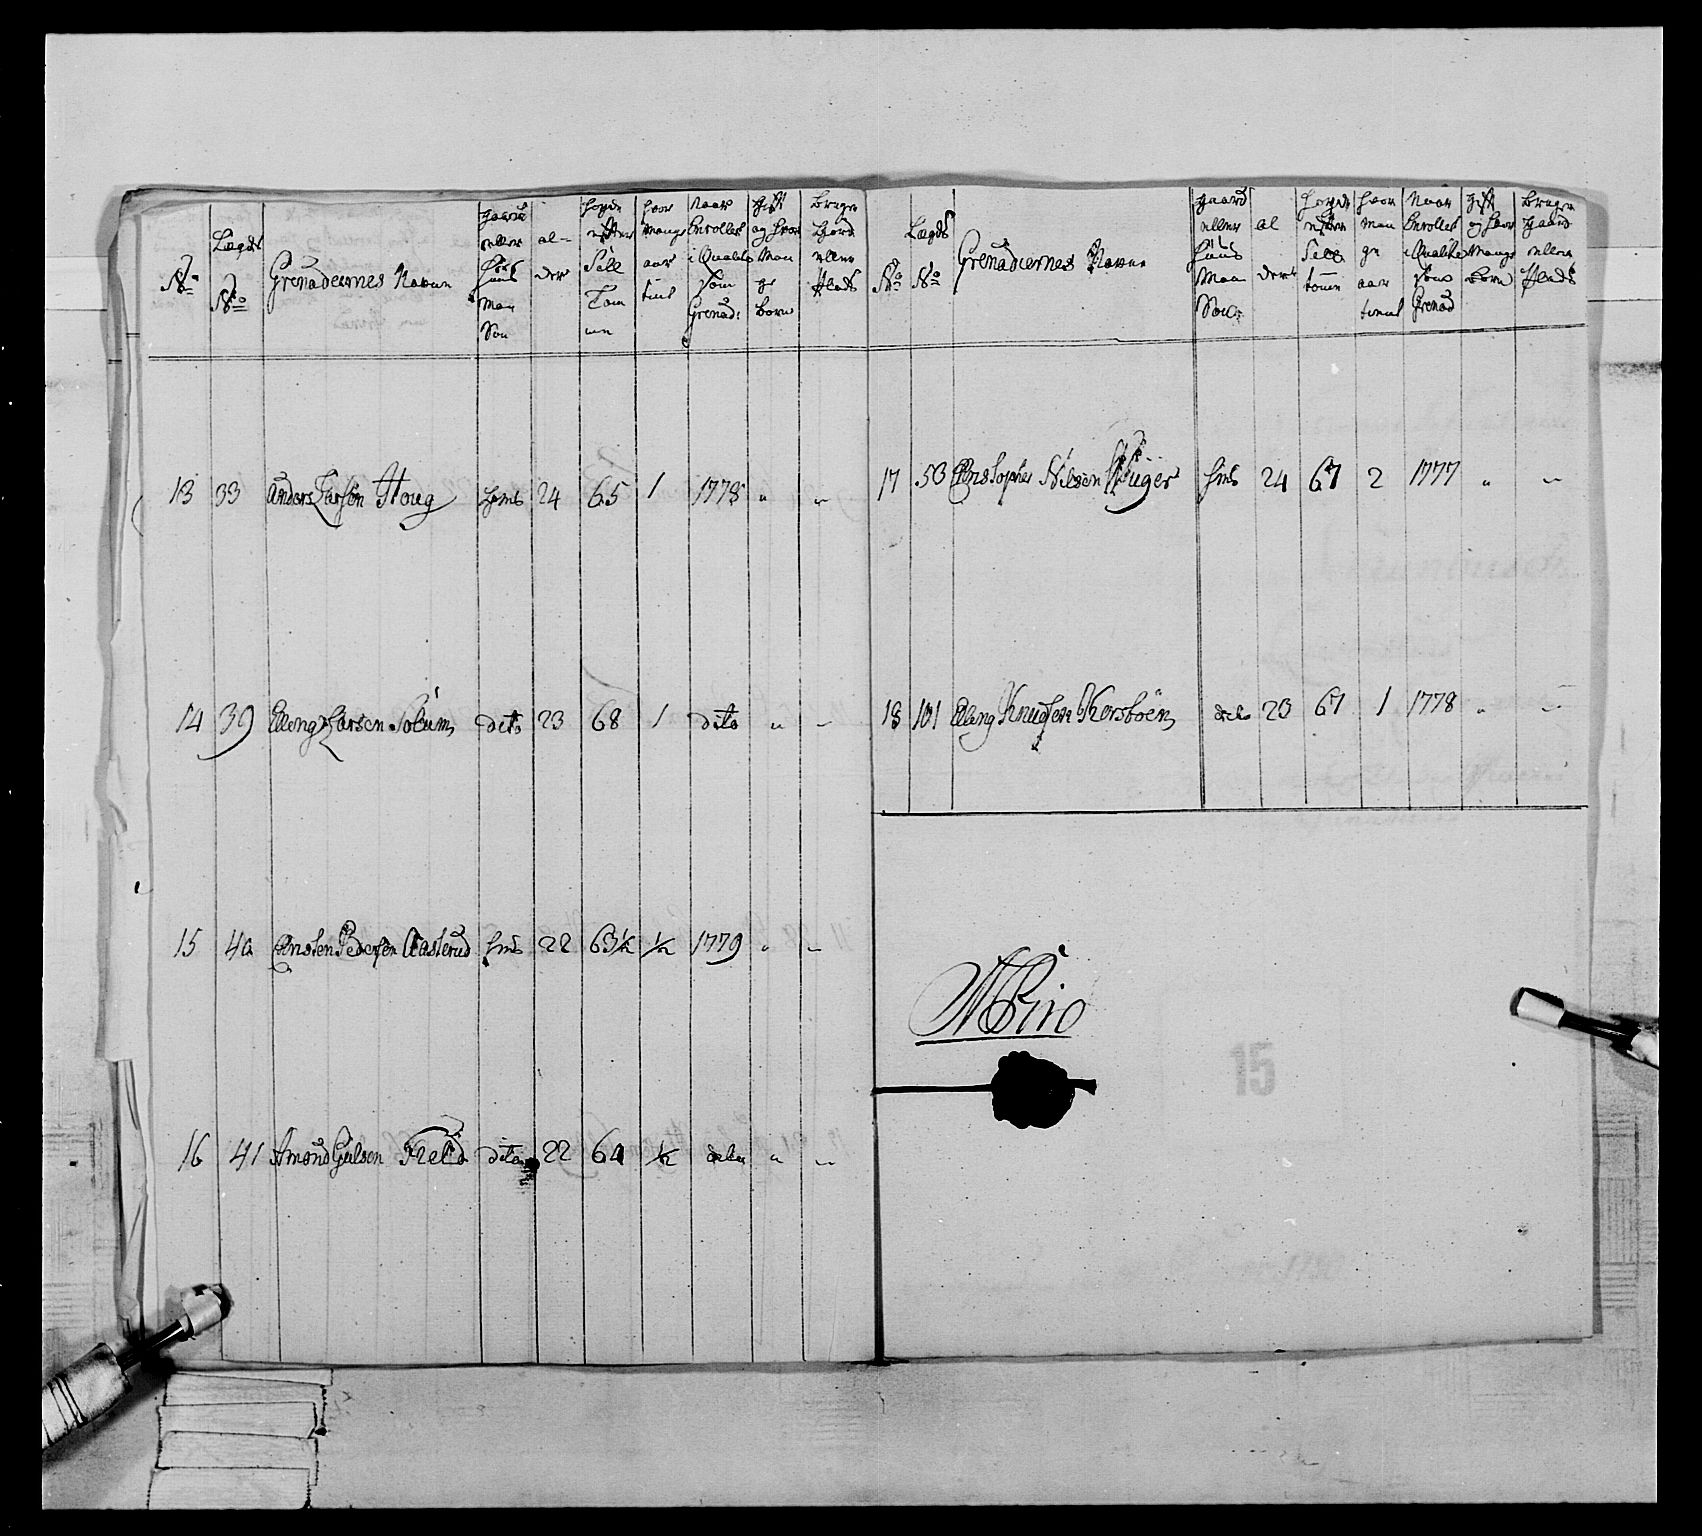 No
Lægds
No
Grenadeernes Navne
gaard
eller
Huus
Man
Søn
al-
der
Høyde
efter
Sell
Tom
men
hvor
mange
aar
tient
Naar
Enrollert
i Qualite
som
Grenad:
Gift
og hvor
Man
ge
børn
bruger
gaard
eller
Plads
13 33 Anders Larsen Houg hmS 24 65 1 1778 " "
14 39 Elleng Larsen Solum dito 23 68 1 dito " "
15 40 Chresten Pedersen Aasterud hmS 22 63½ ½ 1779 " "
16 41 Amond Gulsen Field dito 22 64 ½ dito " "
No
Lægds
No
Grenadeernes Navne
gaard
eller
Huus
Man
Søn
al
der
Høyde
efter
Sell
tomm
hvor
man
ge
aar
tient
Naar
Enrollert
i Qualite
som
Grenad
Gift
og hvor
mange
børn
bruger
gaard
eller
Plads
17 53 Christopher Nilsen hmS 24 67 2 1777 " "
18 101 Elling Knudsen Korsbøen dito 23 67 1 1778 " "
15